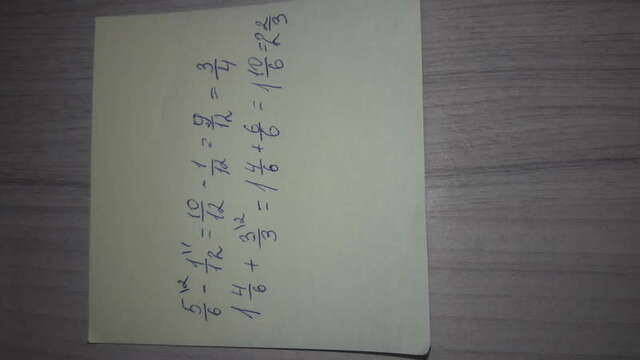 5/6 \2 - 1/12 \1 = 10/12 - 1/12 = 9/12 = 3/4
1 4/6 + 3/3 \2 = 1 4/6 + 6/6 = 1 10/6 = 2 2/3